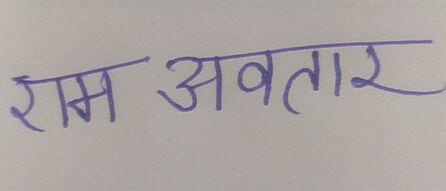 राम अवतार